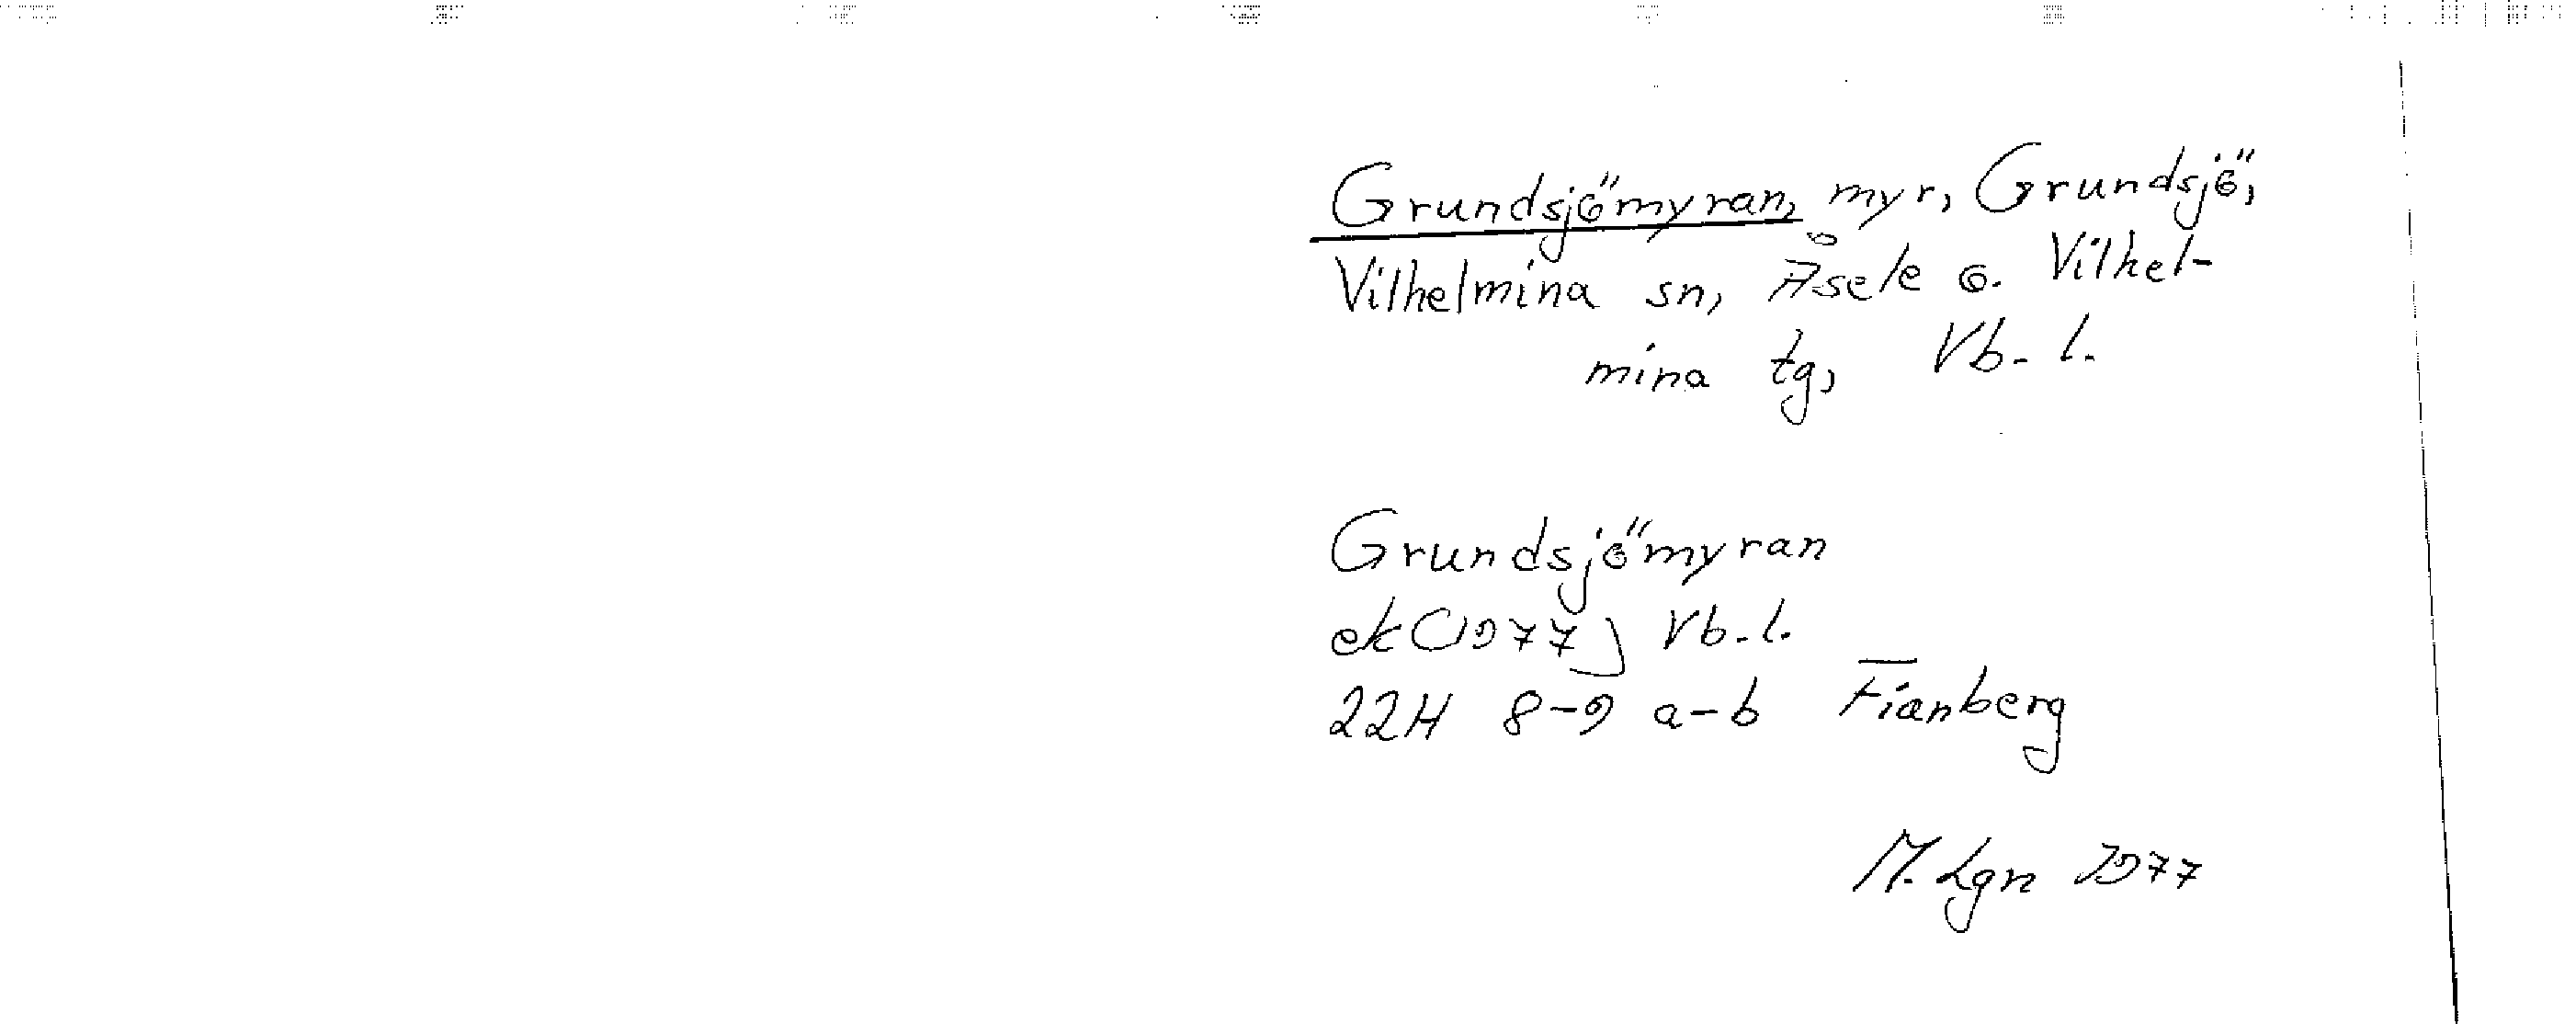 Grundsjömyran, myr, Grundsjö,
Vilhelmina sn, Åsele o. Vilhel-
mina tg, Vb. l.
Grundsjömyran
ek (1977) Vb. l.
22H 8-9 a-b Fianberg
M. Lgn 1977